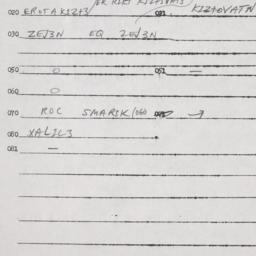 020 EROTAKIZI3/ 021 KIZAOVATN
030 ZEJ3N EQ ZEJ3N
050 O 051 —
060 O
070 ROC SMARIK/060 →
080 XALIL3
081 —